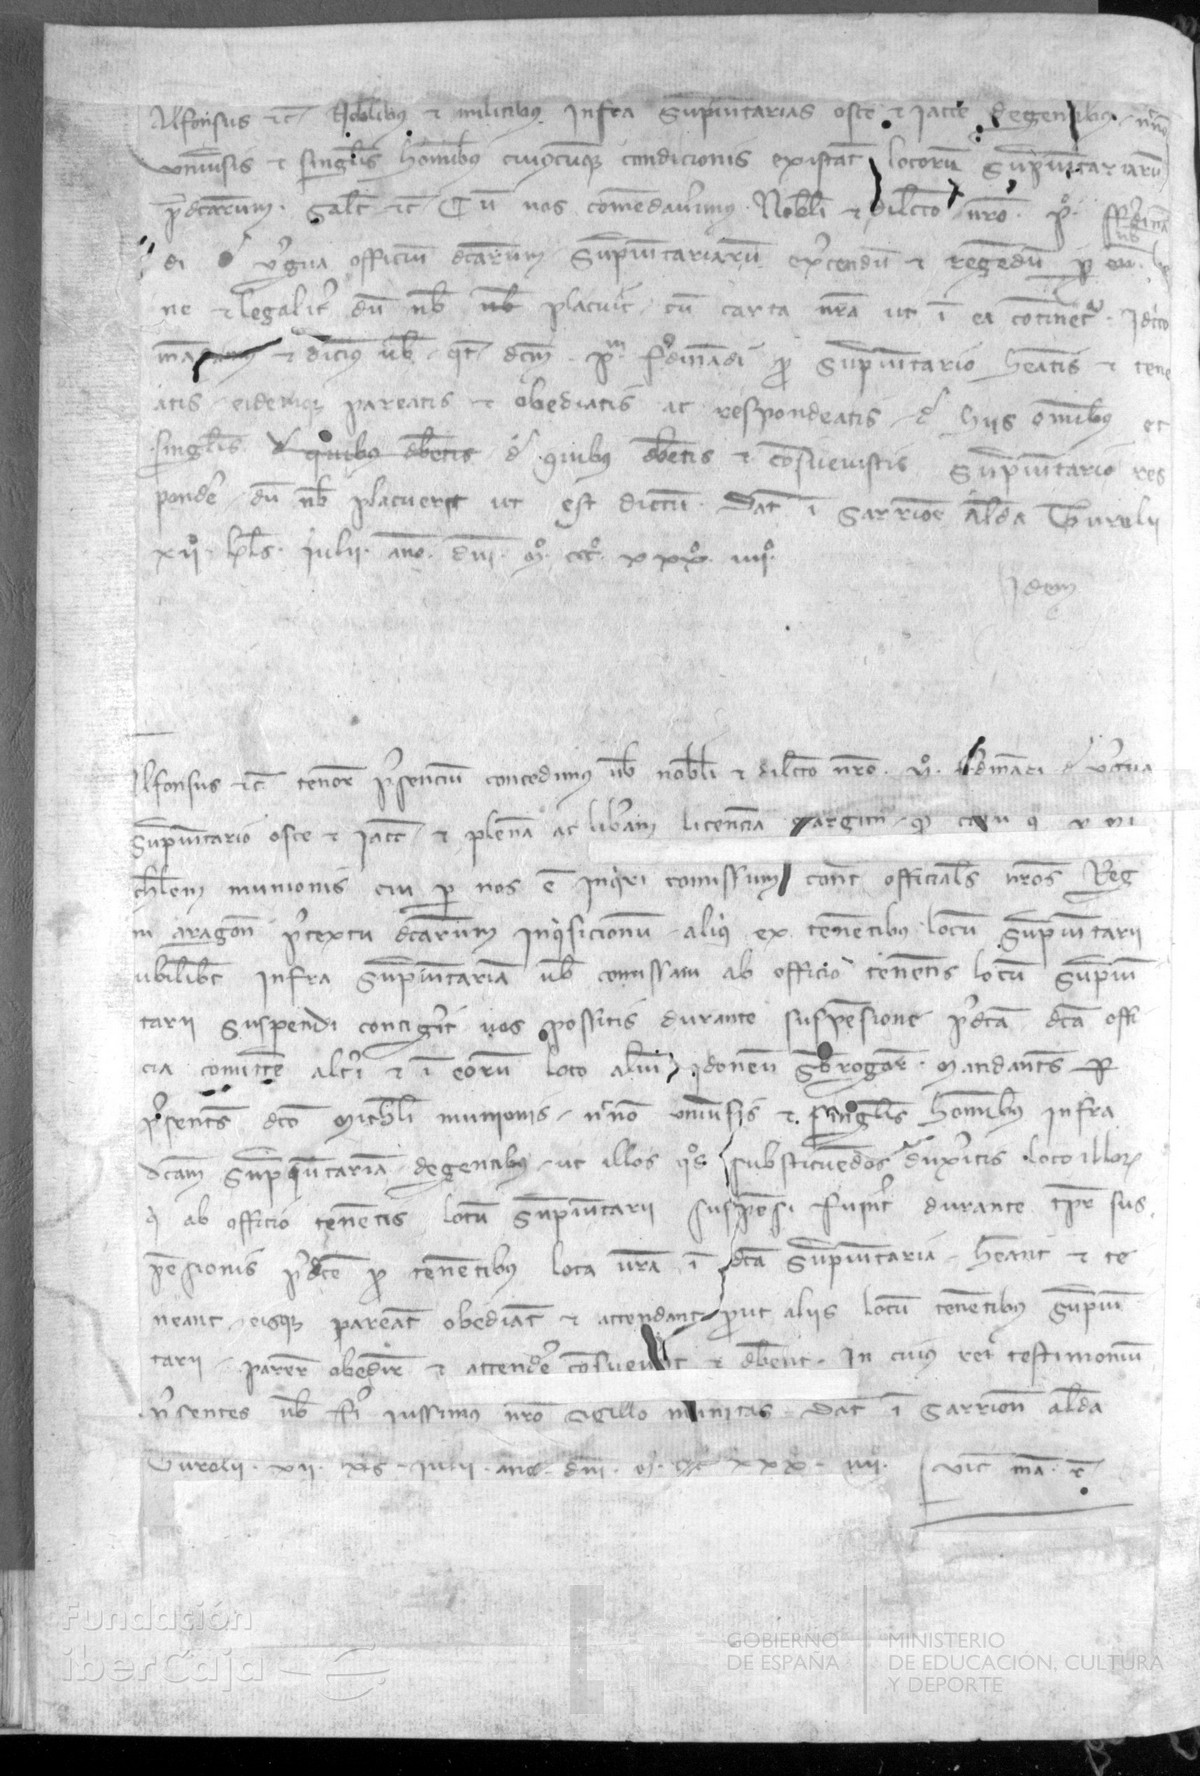 Alfonsus etc Nobilibus et militibus infra Supraiunctarias osce et Jacce degentibus necno
universis et singlis hominibus cuiuscumque condicionis existant locorum Supraiunctariarum
pdcarum. Salt etc Cum nos comendaverimus Nobili et dilcto nro. po. ffrdina
di d vrgua officium dcarum Supraiunctariarum exercendum et regendum per eum be
ne et legalit dum nob placuit cum carta nra ut in ea continetur. Idcirco
mandamus et dicimus vob qt dcm pm frdinandi pro Supraiunctario heatis et tene
atis eidemque pareatis et obediatis ac respondeatis d hiis omnibus et
singlis d quibus dbetis d quibus dbetis et consuevistis Supraiunctario res
pondere dum nob placuerit ut est dictum. Dat in Sarrione alda Turolii
xiio. kls. Julii. anno. dni. mo. ccco. xxxo. iiiio.
Idem
Alfonsus etc tenore psencium concedimus vob nobili et dilcto nro. po. frdinandi d vrgua
Supraiunctario osce et Jacce et plenam ac liberam licenciam
chlem munionis cui per nos e inquiri comissum contra officiales nros Reg
ni aragon ptextu dcarum inquisicionum aliquis ex tenentibus locum Supraiunctarii
ubilibet infra Supraiunctariam vob comissam ab officio tenentis locum Supraiun
tarii suspendi contigerit vos possitis durante suspensione pdcam dcam offi
cia comittere alteri et in eorum loco alium ydoneum subrogare. Mandantes per
psentes dco Michli munionis necno universis et singlis hominibus infra
dcam Supraiunctariam degentibus ut illos quos substituendos duxeritis loco illorum
qui ab officio tenentis locum Supraiunctarii suspensi fuerint durante tpre sus
pensionis pdce pro tenentibus loca vra in dca Supraiunctaria heant et te
neant eisque pareant obediant et attendant prout aliis locum tenentibus Supraiun
tarii parere obedire et attendere consueverunt et dbent. In cuius rei testimonium
psentes vob fi iussimus nro sigillo munitas Dat in Sarrion alda
Turolii. xii. kls. Julii. anno. dni. mo. ccco. xxxo. iiii.
Fundación
iberCaja
GOBIERNO
DE ESPAÑA
MINISTERIO
DE EDUCACIÓN, CULTURA
Y DEPORTE